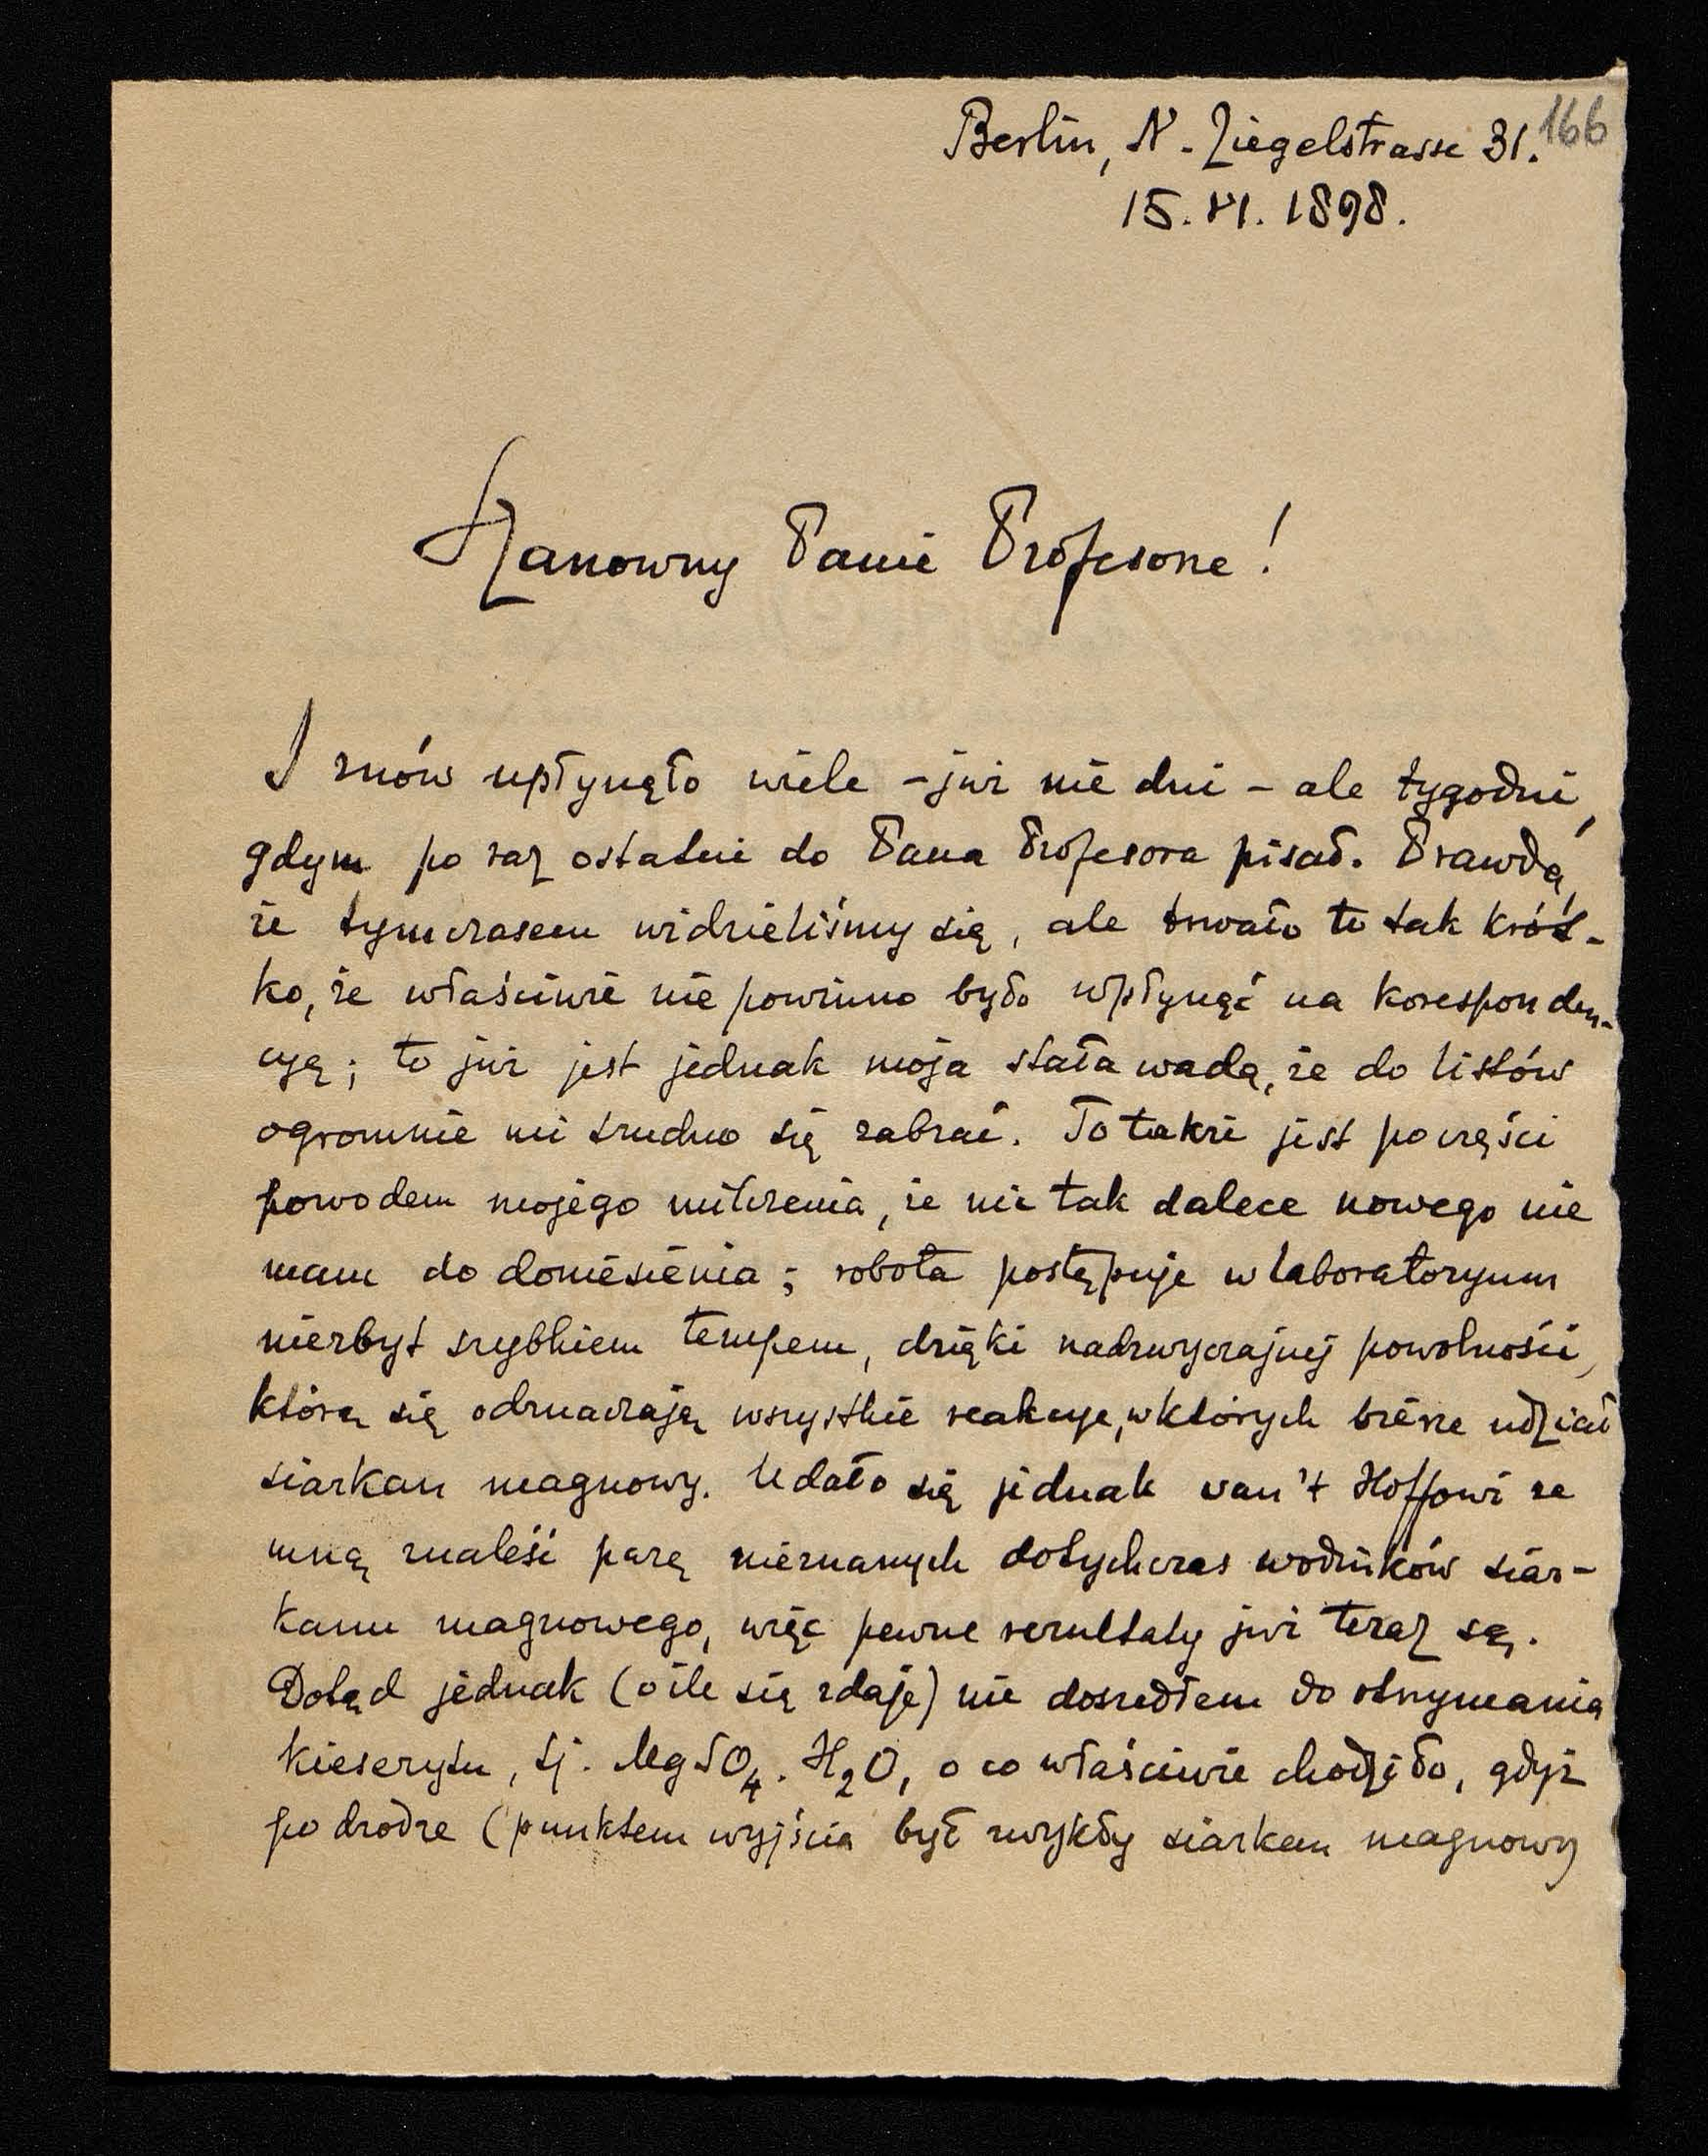 166
Berlin, N. Ziegelstrasse 31.
15. VI. 1898.
Szanowny Panie Profesorze!
I znów upłynęło wiele – już nie dni – ale tygodni,
gdym po raz ostatni do Pana Profesora pisał. Prawda,
że tymczasem widzieliśmy się, ale trwało to tak krót-
ko, że właściwie nie powinno było wpłynąć na koresponden-
cyę; to już jest jednak moja stała wada, że do listów
ogromnie mi trudno się zabrać. To także jest poczęści
powodem mojego milczenia, że nic tak dalece nowego nie
mam do doniesienia; robota postępuje w laboratoryum
niezbyt szybkiem tempem, dzięki nadzwyczajnej powolności,
którą się odznaczają wszystkie reakcye, w których bierze udział
siarkan magnowy. Udało się jednak van't Hoffowi ze
mną znaleść parę nieznanych dotychczas wodników siar-
kanu magnowego, więc pewne rezultaty już teraz są.
Dotąd jednak (o ile się zdaje) nie doszedłem do otrzymania
kieserytu, tj. MgSO₄. H₂O, o co właściwie chodziło, gdyż
po drodze (punktem wyjścia był zwykły siarkan magnowy